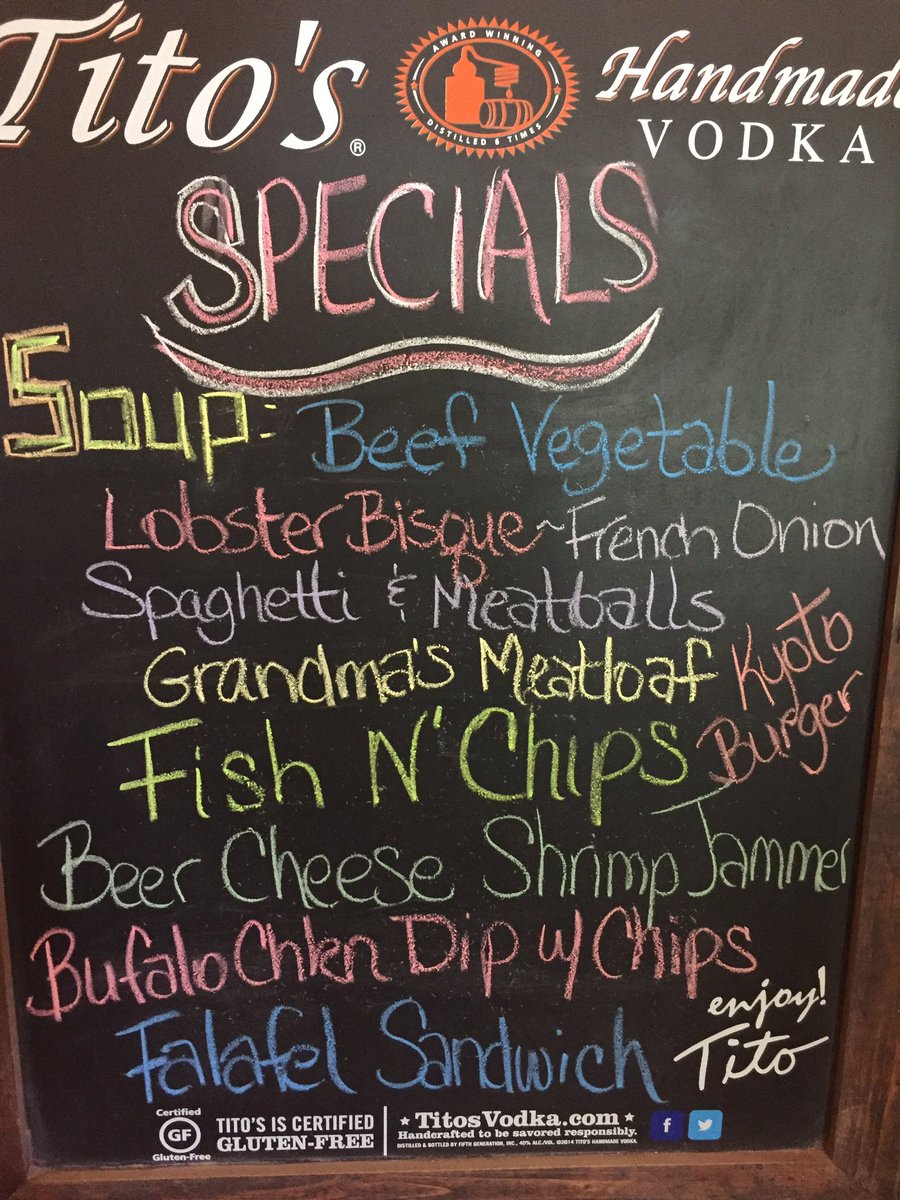 Tito's® Handmade
VODKA
AWARD WINNING
DISTILLED 6 TIMES
SPECIALS
Soup: Beef Vegetable
Lobster Bisque ~ French Onion
Spaghetti & Meatballs
Grandma's Meatloaf
Kyoto
Burger
Fish N' Chips
Beer Cheese Shrimp Jammer
Bufalo Chkn Dip w/ Chips
Falafel Sandwich
enjoy!
Tito
Certified
GF
Gluten-Free
TITO'S IS CERTIFIED
GLUTEN-FREE
★ TitosVodka.com ★
Handcrafted to be savored responsibly.
DISTILLED & BOTTLED BY FIFTH GENERATION, INC., 40% ALC./VOL. ©2014 TITO'S HANDMADE VODKA.